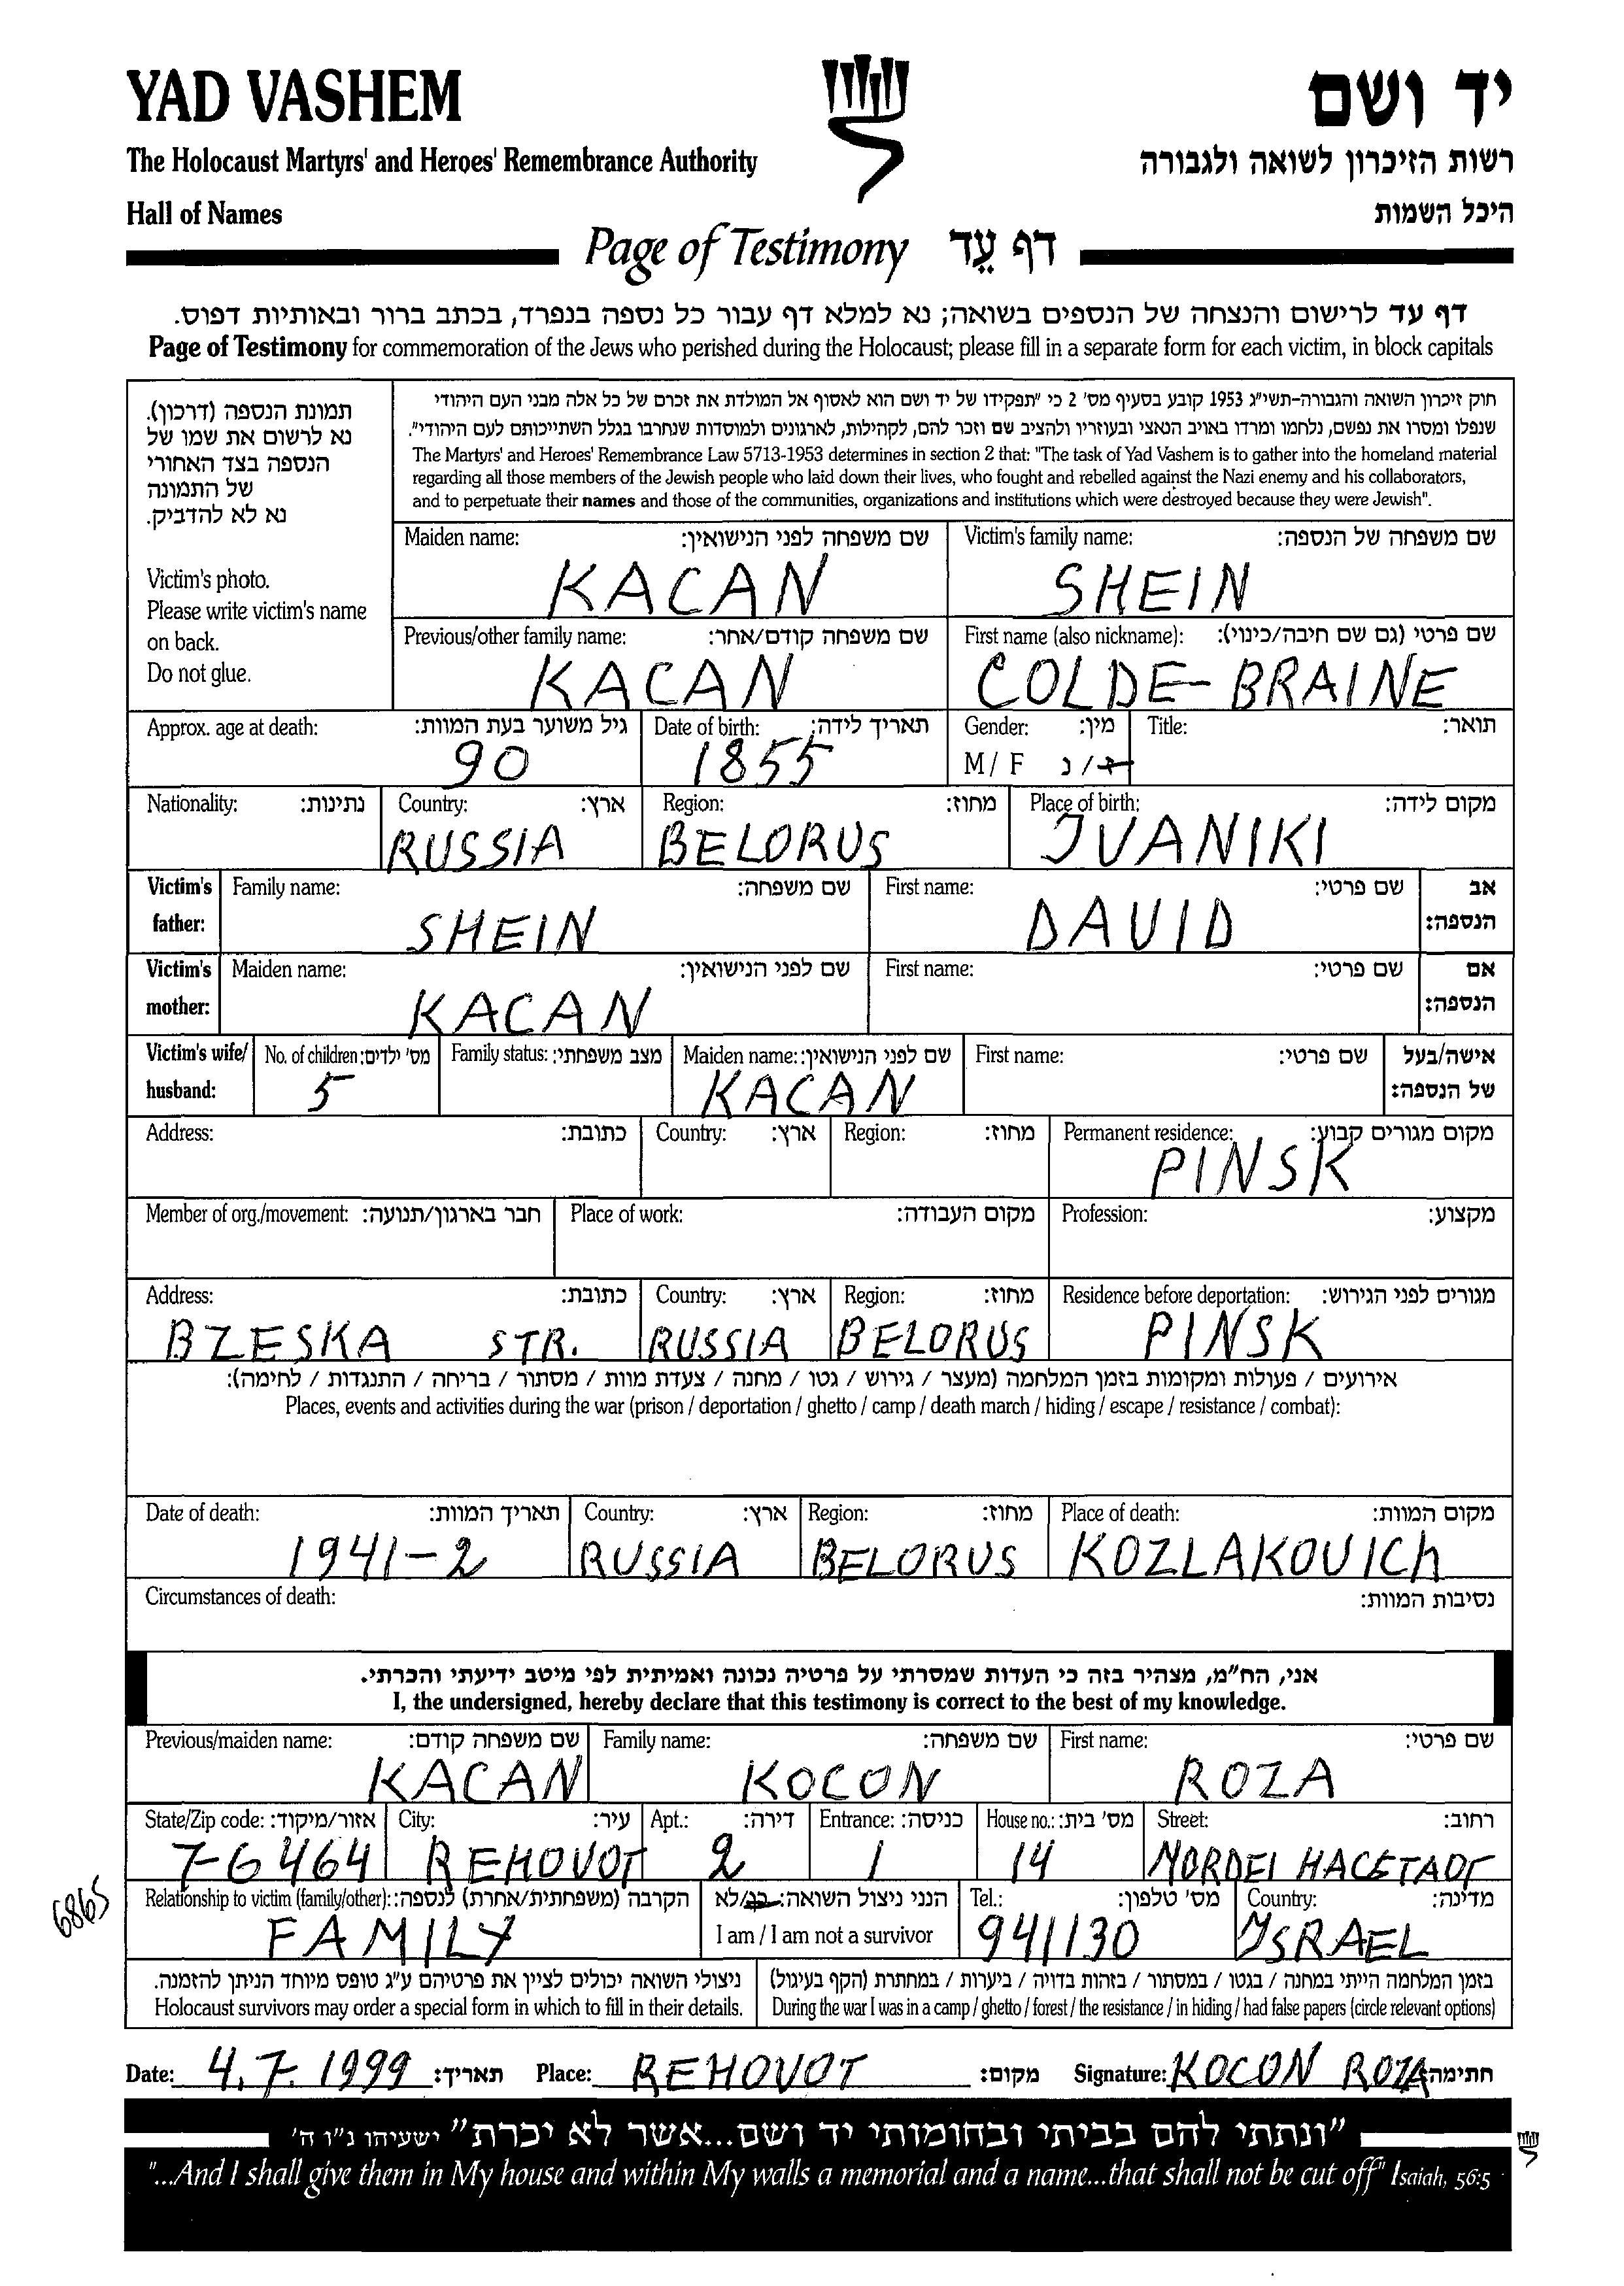 YAD VASHEM
יד ושם
The Holocaust Martyrs' and Heroes' Remembrance Authority
רשות הזיכרון לשואה ולגבורה
Hall of Names
היכל השמות
Page of Testimony דף עֵד
דף עד לרישום והנצחה של הנספים בשואה; נא למלא דף עבור כל נספה בנפרד, בכתב ברור ובאותיות דפוס.
Page of Testimony for commemoration of the Jews who perished during the Holocaust; please fill in a separate form for each victim, in block capitals
תמונת הנספה (דרכון).
נא לרשום את שמו של
הנספה בצד האחורי
של התמונה
נא לא להדביק.
Victim's photo.
Please write victim's name
on back.
Do not glue.
חוק זיכרון השואה והגבורה-תשי"ג 1953 קובע בסעיף מס' 2 כי "תפקידו של יד ושם הוא לאסוף אל המולדת את זכרם של כל אלה מבני העם היהודי
שנפלו ומסרו את נפשם, נלחמו ומרדו באויב הנאצי ובעוזריו ולהציב שם וזכר להם, לקהילות, לארגונים ולמוסדות שנחרבו בגלל השתייכותם לעם היהודי".
The Martyrs' and Heroes' Remembrance Law 5713-1953 determines in section 2 that: "The task of Yad Vashem is to gather into the homeland material
regarding all those members of the Jewish people who laid down their lives, who fought and rebelled against the Nazi enemy and his collaborators,
and to perpetuate their names and those of the communities, organizations and institutions which were destroyed because they were Jewish".
Maiden name: שם משפחה לפני הנישואין: Victim's family name: שם משפחה של הנספה:
KACAN SHEIN
Previous/other family name: שם משפחה קודם/אחר: First name (also nickname): שם פרטי (גם שם חיבה/כינוי):
KACAN COLDE-BRAINE
Approx. age at death: גיל משוער בעת המוות: Date of birth: תאריך לידה: Gender: מין: Title: תואר:
90 1855 M / F ז / נ
Nationality: נתינות: Country: ארץ: Region: מחוז: Place of birth: מקום לידה:
RUSSIA BELORUS IVANIKI
Victim's father: Family name: שם משפחה: First name: שם פרטי: אב הנספה:
SHEIN DAVID
Victim's mother: Maiden name: שם לפני הנישואין: First name: שם פרטי: אם הנספה:
KACAN
Victim's wife/ husband: No. of children: מס' ילדים: Family status: מצב משפחתי: Maiden name: שם לפני הנישואין: First name: שם פרטי: אישה/בעל של הנספה:
5 KACAN
Address: כתובת: Country: ארץ: Region: מחוז: Permanent residence: מקום מגורים קבוע:
PINSK
Member of org./movement: חבר בארגון/תנועה: Place of work: מקום העבודה: Profession: מקצוע:
Address: כתובת: Country: ארץ: Region: מחוז: Residence before deportation: מגורים לפני הגירוש:
BZESKA STR. RUSSIA BELORUS PINSK
אירועים / פעולות ומקומות בזמן המלחמה (מעצר / גירוש / גטו / מחנה / צעדת מוות / מסתור / בריחה / התנגדות / לחימה):
Places, events and activities during the war (prison / deportation / ghetto / camp / death march / hiding / escape / resistance / combat):
Date of death: תאריך המוות: Country: ארץ: Region: מחוז: Place of death: מקום המוות:
1941-2 RUSSIA BELORUS KOZLAKOVICh
Circumstances of death: נסיבות המוות:
אני, הח"מ, מצהיר בזה כי העדות שמסרתי על פרטיה נכונה ואמיתית לפי מיטב ידיעתי והכרתי.
I, the undersigned, hereby declare that this testimony is correct to the best of my knowledge.
Previous/maiden name: שם משפחה קודם: Family name: שם משפחה: First name: שם פרטי:
KACAN KOCON ROZA
State/Zip code: אזור/מיקוד: City: עיר: Apt.: דירה: Entrance: כניסה: House no.: מס' בית: Street: רחוב:
7-6464 REHOVOT 2 1 14 MORDEI HACETAOT
6865
Relationship to victim (family/other): הקרבה (משפחתית/אחרת) לנספה: הנני ניצול השואה: כן/לא Tel.: מס' טלפון: Country: מדינה:
FAMILY I am / I am not a survivor 941130 ISRAEL
ניצולי השואה יכולים לציין את פרטיהם ע"ג טופס מיוחד הניתן להזמנה.
Holocaust survivors may order a special form in which to fill in their details.
בזמן המלחמה הייתי במחנה / בגטו / במסתור / בזהות בדויה / ביערות / במחתרת (הקף בעיגול)
During the war I was in a camp / ghetto / forest / the resistance / in hiding / had false papers (circle relevant options)
Date: 4.7.1999 תאריך: Place: REHOVOT מקום: Signature: KOCON ROZA חתימה:
"ונתתי להם בביתי ובחומותי יד ושם...אשר לא יכרת" ישעיהו נ"ו ה'
"...And I shall give them in My house and within My walls a memorial and a name...that shall not be cut off" Isaiah, 56:5